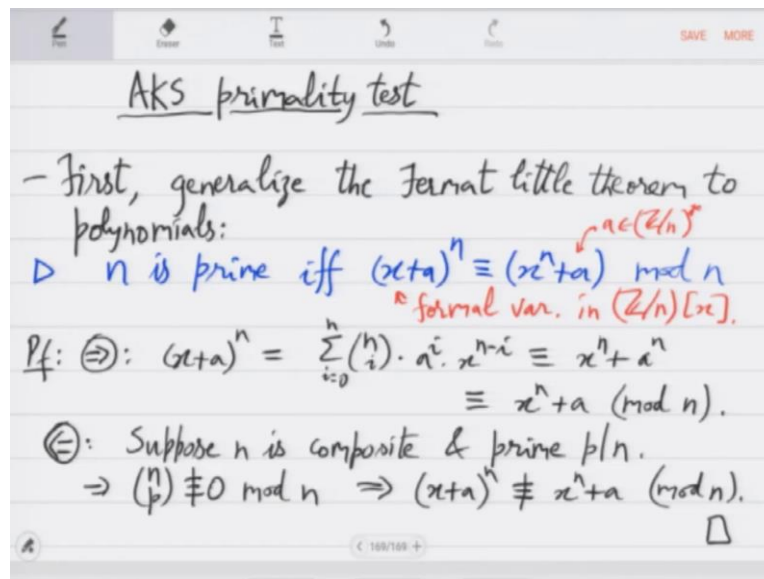 Pen Eraser Text Undo Redo SAVE MORE
AKS primality test
- First, generalize the Fermat little theorem to
polynomials:
a∈(ℤ/n)*
▷ n is prime iff (x+a)^n ≡ (x^n+a) mod n
formal var. in (ℤ/n)[x].
Pf: ⇒: (x+a)^n = Σ_{i=0}^{n} (n choose i) · a^i · x^{n-i} ≡ x^n + a^n
≡ x^n + a (mod n).
⇐: Suppose n is composite & prime p|n.
⇒ (n choose p) ≢ 0 mod n ⇒ (x+a)^n ≢ x^n+a (mod n).
□
< 169/169 +